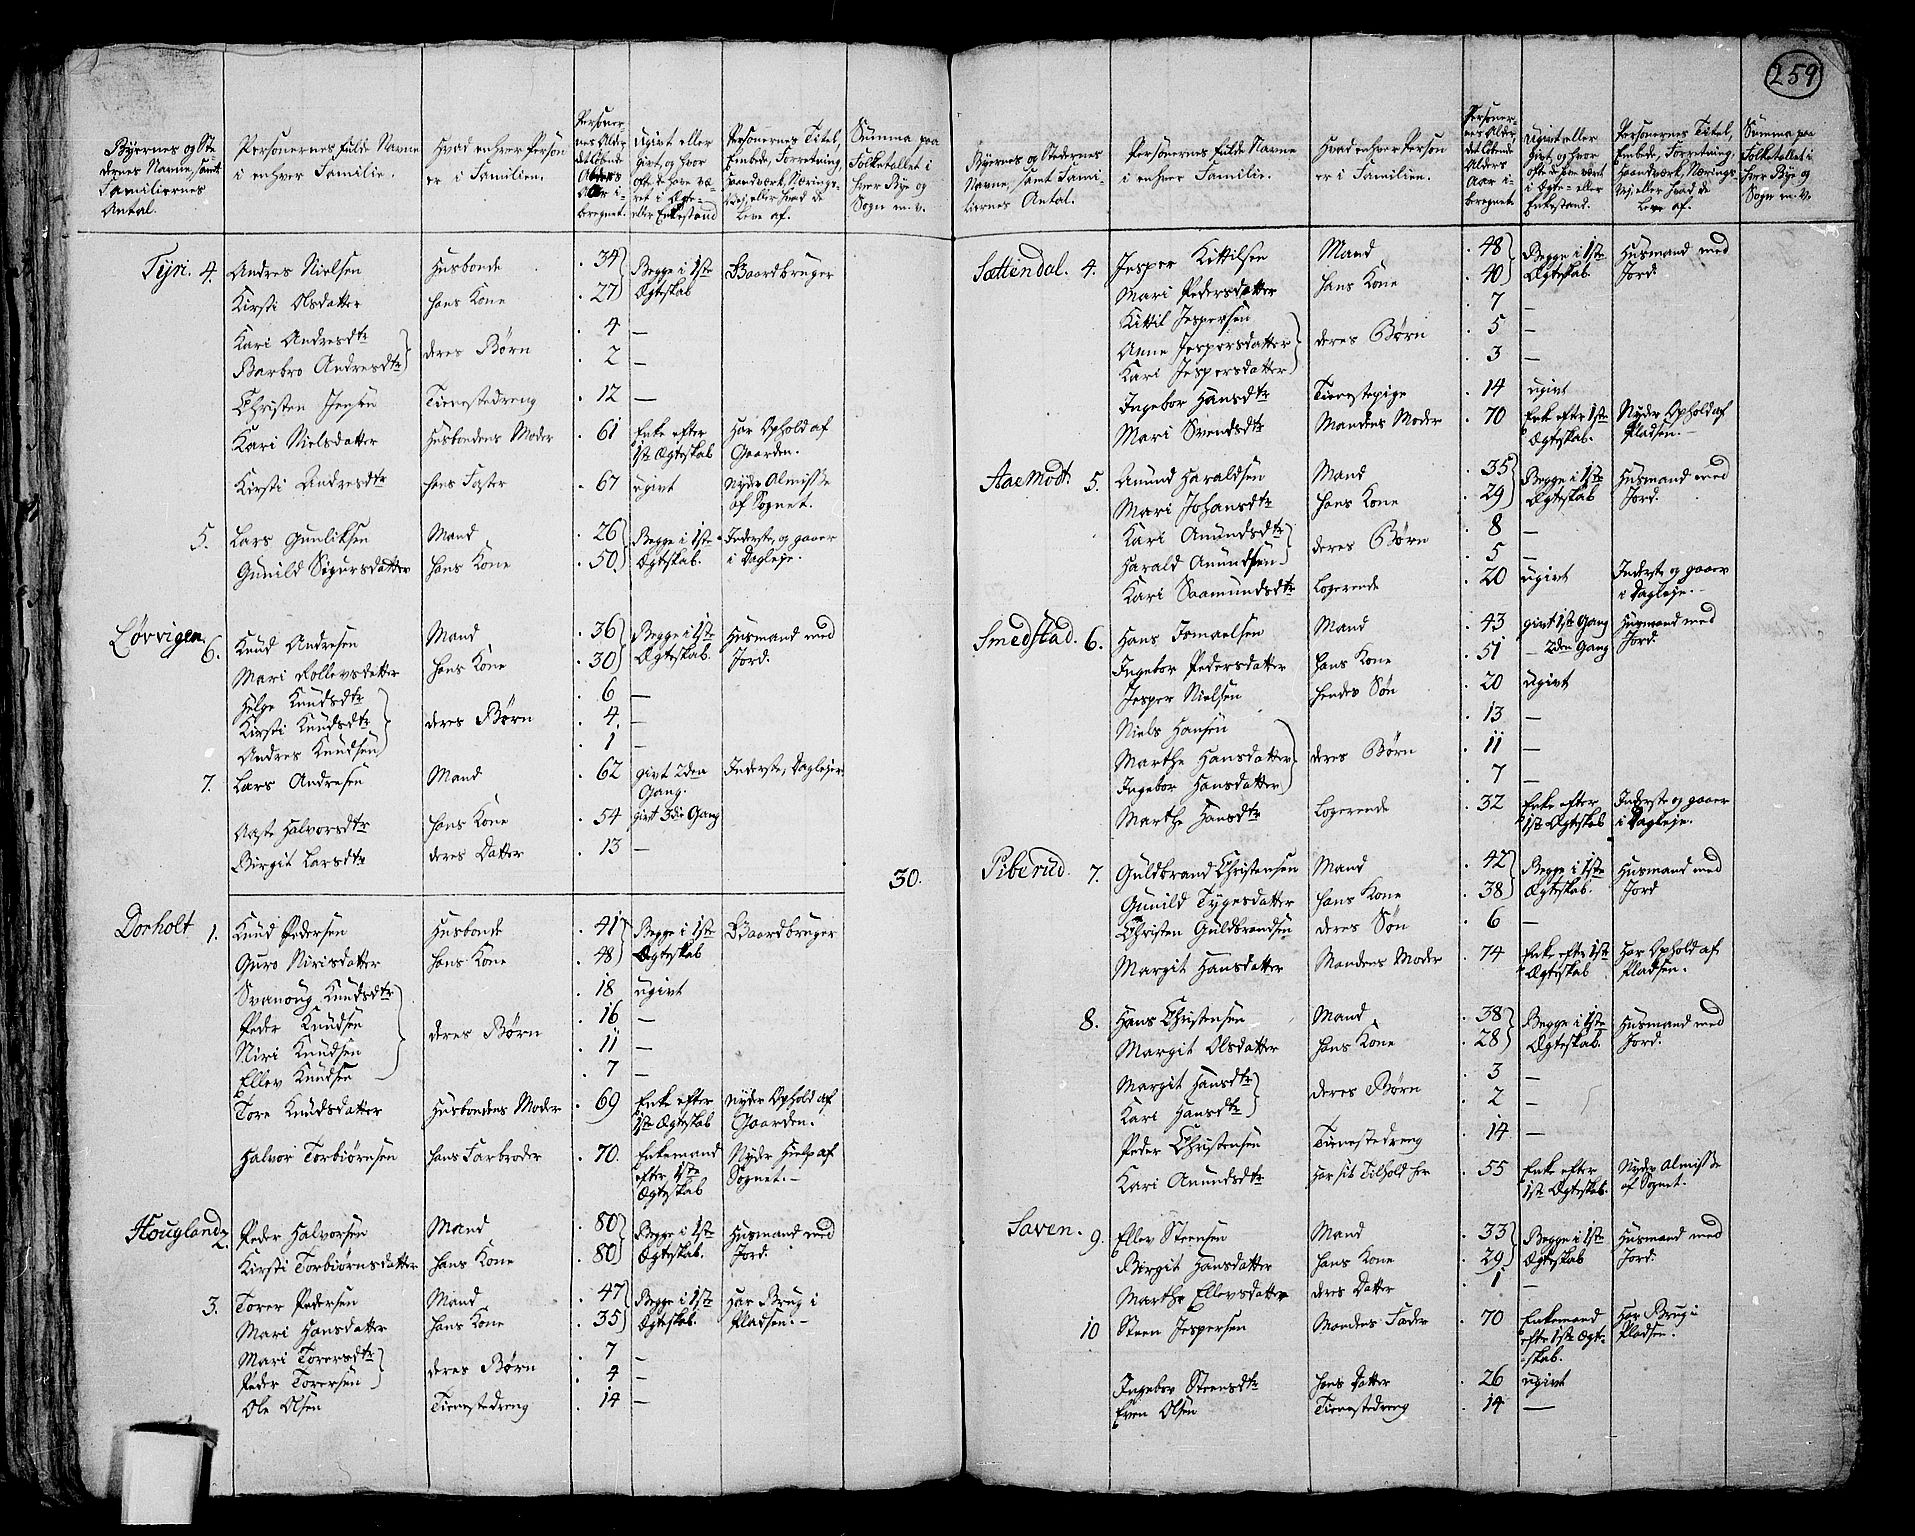 259
Byernes og Ste
dernes Navne, samt
Familiernes
Antal.
Personernes fulde Navne
i enhver Familie.
Hvad enhver Person
er i Familien.
Personer
nes Alder
det løbende
Alders
Aar i-
beregnet.
Ugivt eller
givt, og hvor
ofte de have væ-
ret i Ægte-
eller Enkestand
Personernes Titel,
Embede, Forretning,
Haandværk, Nærings-
vej, eller hvad de
leve af.
Summa paa
Folketallet i
hver Bye og
Sogn m. v.
Tyri. 4. Andres Nielsen Husbonde 34 Begge i 1ste Gaardbruger
Kirsti Olsdatter hans Kone 27 Ægteskab
Kari Andresdtr 4 —
Barbro Andresdtr deres Børn 2 —
Christen Jensen Tienestedreng 12 —
Kari Nielsdatter Husbondens Moder 61 Enke efter Har Ophold af
1ste Ægteskab Gaarden.
Kirsti Andresdtr hans Faster 67 ugivt Nyder Almisse
af Sognet.
5. Lars Gunliksen Mand 26 Begge i 1ste Inderste, og gaaer
Gunild Sigursdatter hans Kone 50. Ægteskab. i Dagleje
Løvvigen 6. Knud Andresen Mand 36 Begge i 1ste Husmand med
Mari Rollevsdatter hans Kone 30 Ægteskab. Jord.
Helge Knudsdtr 6 —
Kirsti Knudsdtr deres Børn 4. —
Andres Knudsen 1 —
7. Lars Andresen Mand 62 givt 2den Inderste, Daglejer
Gang.
Aaste Halvorsdtr hans Kone 54 givt 3die Gang
Birgit Larsdtr deres Datter 13 —
30.
Dorholt 1. Knud Pedersen Husbonde 41 Begge i 1ste Gaardbruger
Guro Nirisdatter hans Kone 48 Ægteskab
Svanoug Knudsdtr 18 ugivt
Peder Knudsen 16 —
Niri Knudsen deres Børn 11 —
Ellev Knudsen 7 —
Tore Knudsdatter Husbondens Moder 69 Enke efter nyder Ophold af
1ste Ægteskab Gaarden.
Halvor Torbiørnsen hans Farbroder 70. Enkemand Nyder Hielp af
efter 1ste Sognet. —
Ægteskab
Hougland 2. Peder Halvorsen Mand 80 Begge i 1ste Husmand med
Kirsti Torbiørnsdatter hans Kone 80 Ægteskab. Jord.
3. Torer Pedersen Mand 47 Begge i 1ste Har Brug i
Mari Hansdatter hans Kone 35 Ægteskab. Pladsen. —
Mari Torersdtr 7 —
Peder Torersen deres Børn 4 —
Ole Olsen Tienestedreng 14 —
Byernes og Stedernes
Navne, samt Fami-
liernes Antal.
Personernes fulde Navne
i enhver Familie.
Hvad enhver Person
er i Familien.
Personer-
nes Alder,
det løbende
Alders
Aar i-
beregnet
Ugivt eller
givt, og hvor
ofte de have vært
i Ægte- eller
Enkestand.
Personernes Titel,
Embede, Forretning,
Haandværk, Nærings-
vej, eller hvad de
leve af.
Summa paa
Folketallet i
hver Bye og
Sogn m. v.
Sættendal. 4. Jesper Kittilsen Mand 48 Begge i 1ste Husmand med
Mari Pedersdatter hans Kone 40 Ægteskab. Jord.
Kittil Jespersen 7 —
Anne Jespersdatter deres Børn 5 —
Kari Jespersdatter 3 —
Ingebor Hansdtr Tienestepige 14 ugivt
Mari Svendsdtr Mandens Moder 70 Enke efter 1ste Nyder Ophold af
Ægteskab. Pladsen. —
Aaemodt 5. Amund Haraldsen Mand 35 Begge i 1ste Husmand med
Mari Johansdtr hans Kone 29 Ægteskab Jord.
Kari Amundsdtr 8 —
Harald Amundsen deres Børn 5 —
Kari Saamundsdtr Logerende 20 ugivt Inderste og gaaer
i Dagleje. —
Smedstad. 6. Hans Ismaelsen Mand 43 givt 1ste Gang Husmand med
Ingebor Pedersdatter hans Kone 51 — 2den Gang Jord.
Jesper Nielsen hendes Søn 20 ugivt
Niels Hansen 13 —
Marthe Hansdatter deres Børn 11 —
Ingebor Hansdatter 7 —
Marthe Hansdtr Logerende 32 Enke efter Inderste og gaaer
1ste Ægteskab i Dagleje.
Piberud. 7. Guldbrand Christensen Mand 42 Begge i 1ste Husmand med
Gunild Tygesdatter hans Kone 38 Ægteskab. Jord
Christen Guldbrandsen deres Søn 6 —
Margit Hansdatter Mandens Moder 74 Enke efter 1ste Har Ophold af
Ægteskab Pladsen.
8. Hans Christensen Mand 38 Begge i 1ste Husmand med
Margit Olsdatter hans Kone 28 Ægteskab. Jord.
Margit Hansdtr 3 —
Kari Hansdtr deres Børn 2 —
Peder Christensen Tienestedreng 14 —
Kari Amundsdtr Har sit Tilhold her 55 Enke efter Nyder Almisse
1ste Ægteskab. af Sognet.
Saven. 9. Ellev Steensen Mand 33 Begge i 1ste Husmand med
Birgit Hansdatter hans Kone 29 Ægteskab Jord.
Marthe Ellevsdatter deres Datter 1 —
10 Steen Jespersen Mandens Fader 70 Enkemand Har Brug i
efter 1ste Ægte- Pladsen.
skab.
Ingebor Steensdtr hans Datter 26 ugivt
Even Olsen Tienestedreng 14 —